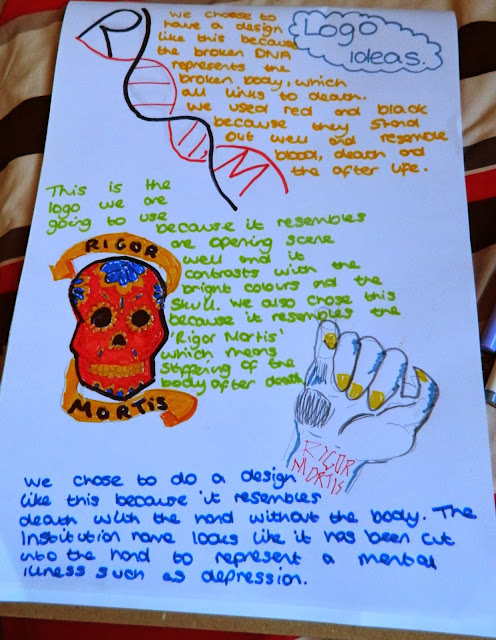 Logo
Ideas.
R
M
We chose to
have a design
like this because
the broken DNA
represents the
broken body, which
all links to death.
We used red and black
because they stand
out well and resemble
blood, death and
the after life.
This is the
logo we are
going to use
because it resembles
are opening scene
well and it
contrasts with the
bright colours and the
skull. We also chose this
because it resembles the
'Rigor Mortis'
which means
stiffening of the
body after death
RIGOR
MORTIS
RIGOR
MORTIS
We chose to do a design
like this because it resembles
death with the hand without the body. The
institution name looks like it has been cut
into the hand to represent a mental
illness such as depression.